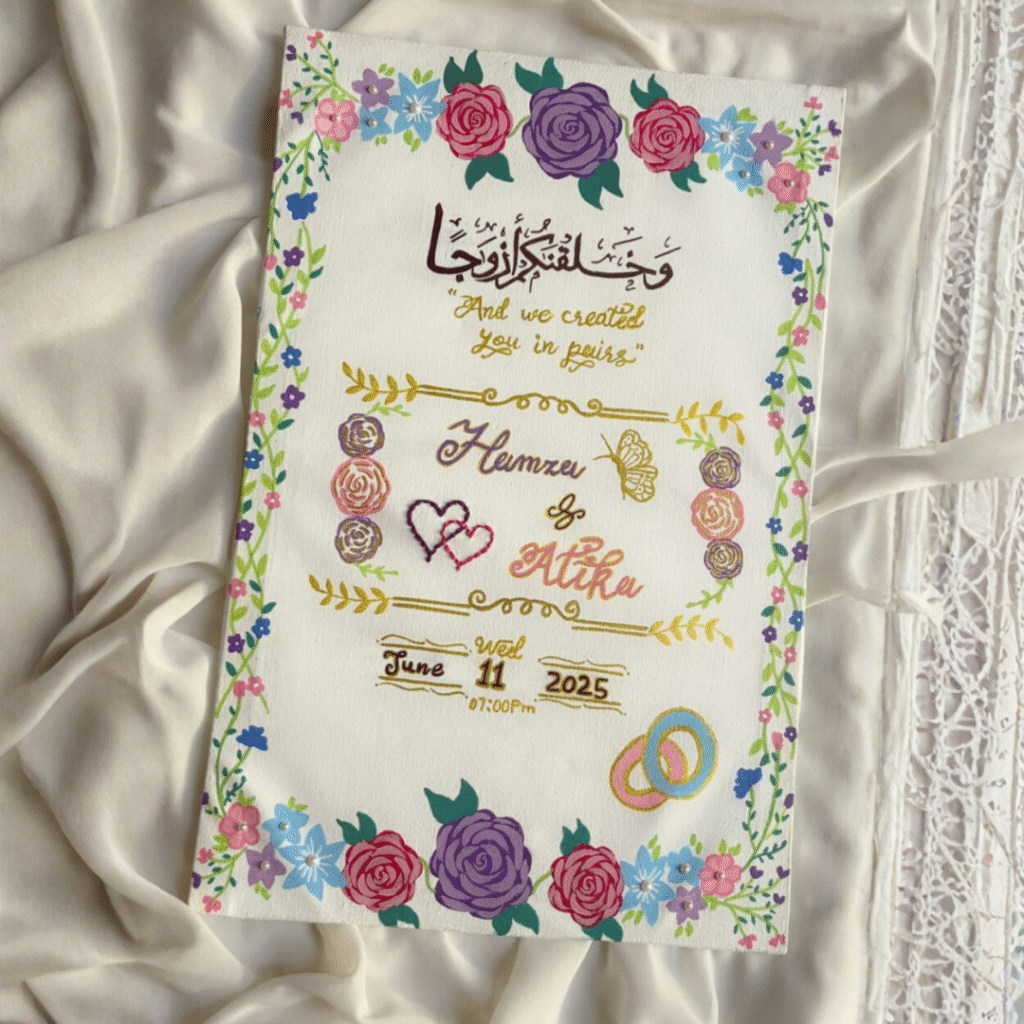 وَخَلَقْنَكُمْ أَزْوَجًا
"And we created
you in pairs"
Hamza
&
Atika
Wed
June 11 2025
07:00Pm